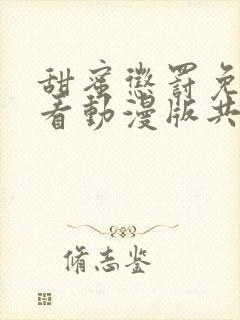 甜蜜懲罰免
看動漫版共
脩志鉴